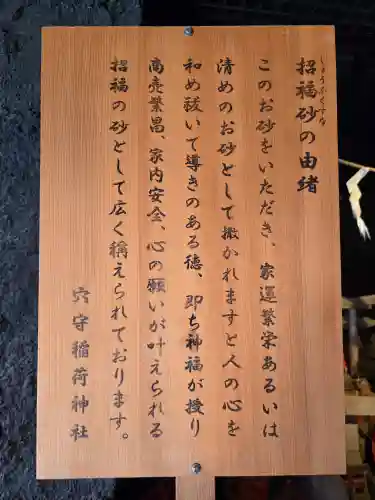 招福砂の由緒
しょうふくずな
このお砂をいただき、家運繁栄あるいは
清めのお砂として撒かれますと人の心を
和め祓いて導きのある徳、即ち神福が授り
商売繁昌、家内安全、心の願いが叶えられる
招福の砂として広く稱えられております。
穴守稲荷神社